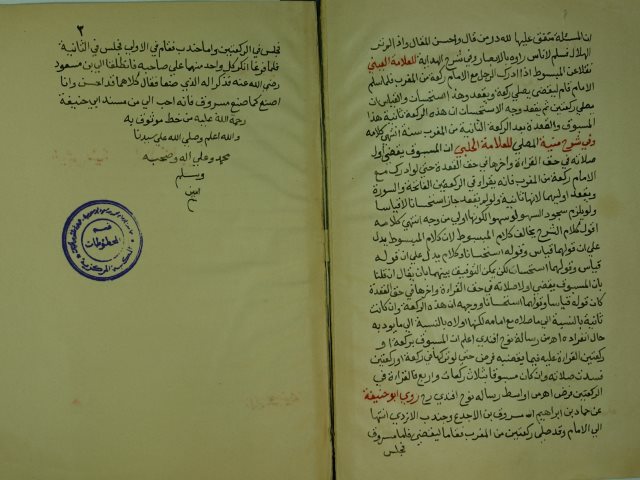 ان المسئلة متفق عليها لله در من قال واحسن المقال واذ الم تر
الهلال فسلم لاناس راوه بالابصار وفي شرح الهداية للعلامة العيني
نقلا عن المبسوط اذا ادرك الرجل مع الامام ركعة من المغرب فلما سلم
الامام قام ليقضي يصلي ركعة ويقعد وهذا استحسان والقياس ان
يصلي ركعتين ثم يقعد وجه الاستحسان ان هذه الركعة ثانية هذا
المسبوق والقعدة بعد الركعة الثانية من المغرب سنة انتهى كلامه
وفي شرح منية المصلي للعلامة الحلبي ان المسبوق يقضي اول
صلاته في حق القراءة واخرها في حق القعدة حتى لو ادرك مع
الامام ركعة من المغرب فانه يقراء في الركعتين الفاتحة والسورة
ويقعد اوليهما لانها ثانية ولو لم يقعد جاز استحسانا لا قياسا
ولم يلزم سجود السهو لو سهوا لكونها اولى من وجه انتهى كلامه
اقول كلام الشرح يخالف كلام المبسوط لان كلام المبسوط يدل
على ان قولهما قياس وقوله استحسانا وكلام يدل على ان قوله
قياس وقولهما استحسان لكن يمكن التوفيق بينهما بان يقال ان قلنا
بان المسبوق يقضي اول صلاته في حق القراءة واخرها في حق القعدة
كان قوله قياسا وقولهما استحسانا ووجهه ان هذه الركعة وان كانت
ثانية بالنسبة الى ما صلاه مع امامه لكنها اولاه بالنسبة الى ما يؤديه
حال انفراده اهـ من رسالة نوح افندي اعلم ان المسبوق بركعة او
ركعتين القراءة عليه فيما يقضيه فرض حتى لو تركها في ركعة او ركعتين
فسدت صلاته وان كان مسبوقا بثلاث ركعات واربع فالقراءة في
الركعتين فرض اهـ من اواسط رسالة نوح افندي رح روى ابو حنيفة
عن حماد بن ابراهيم ان مسروق بن الاجدع وجندب الازدي انتهيا
الى الامام وقد صلى ركعتين من المغرب فقاما ليقضي فلما مسروق
فجلس
٢
فجلس في الركعتين واما جندب فقام في الاولى فجلس في الثانية
فلما فرغا انكر كل واحد منهما على صاحبه فانطلقا الى بن مسعود
رضي الله عنه فذكرا له الذي صنعا فقال كلاهما قد احسن وانا
اصنع كما صنع مسروق فانه احب الي من مسند ابي حنيفة
رحمة الله عليه من خط موثوق به
والله اعلم وصلى الله على سيدنا
محمد وعلى اله وصحبه
وسلم
امين
قسم
المخطوطات
المكتبة المركزية